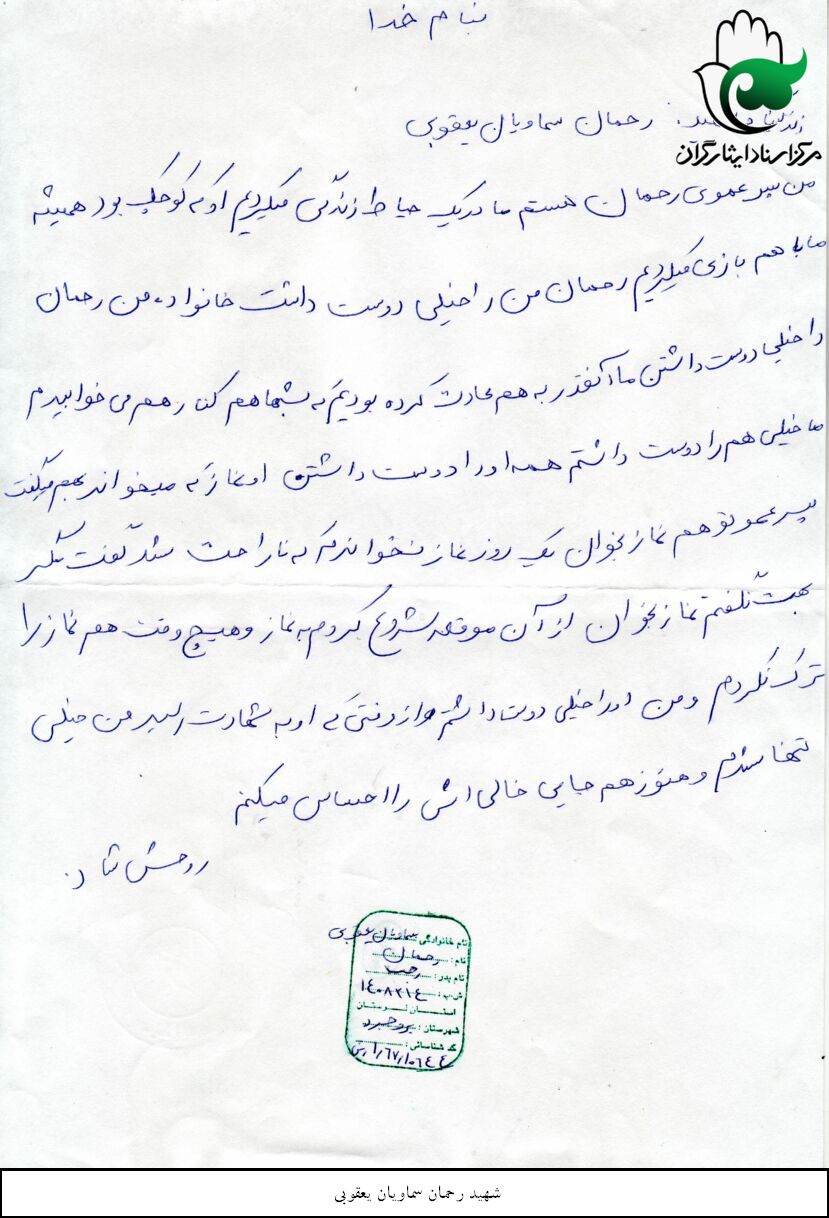 بنام خدا
رحمان سماویان یعقوبی
مرکز اسناد ایثارگران
من پسر عموی رحمان هستم ما در یک حیاط زندگی میکردیم او که کوچک بود همیشه
ما با هم بازی میکردیم رحمان من را خیلی دوست داشت خانواده من رحمان
را خیلی دوست داشتن ما آنقدر به هم عادت کرده بودیم که شبها هم کنار هم می خوابیدم
ما خیلی هم را دوست داشتم همه او را دوست داشتن او نماز که میخواند بهم میگفت
پسر عمو تو هم نماز بخوان یک روز نماز نخواندم که ناراحت شد گفت مگر
بهت نگفتم نماز بخوان از آن موقعه شروع کردم به نماز و هیچ وقت هم نماز را
ترک نکردم و من او را خیلی دوست داشتم و از وقتی که او به شهادت رسید من خیلی
تنها شدم و هنوز هم جایی خالی اش را احساس میکنم
روحش شاد.
نام خانوادگی: سماویان یعقوبی
نام: رحمان
نام پدر: رجب
ش.پ: ۱۴۰۸۲۱۴
استان لرستان
شهرستان: بروجرد
کد شناسائی:
شهید رحمان سماویان یعقوبی